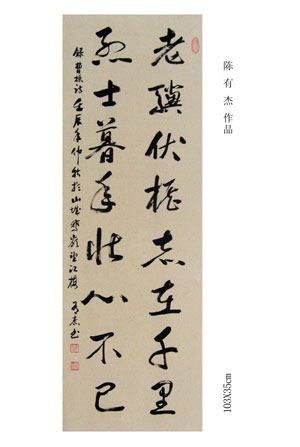 老骥伏枥志在千里
烈士暮年壮心不已
录曹操诗壬辰年仲秋于山城鹅岭望江楼 有杰书
陈有杰 作品
103X35cm